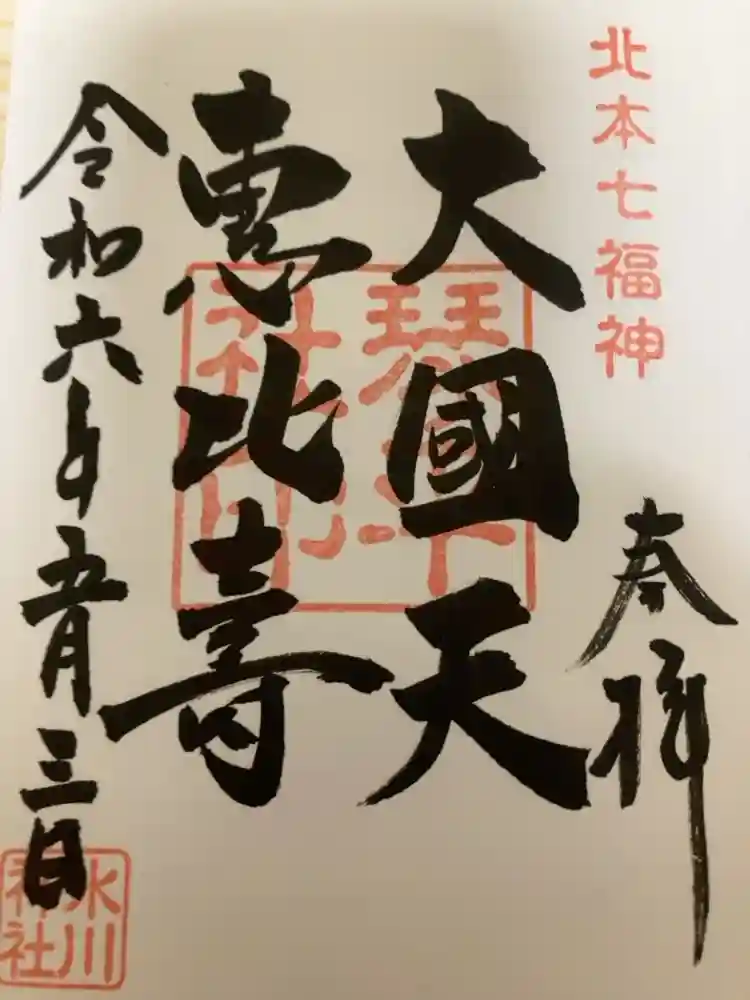 北本七福神
奉拝
大國天
恵比寿
令和六年五月三日
氷川
神社